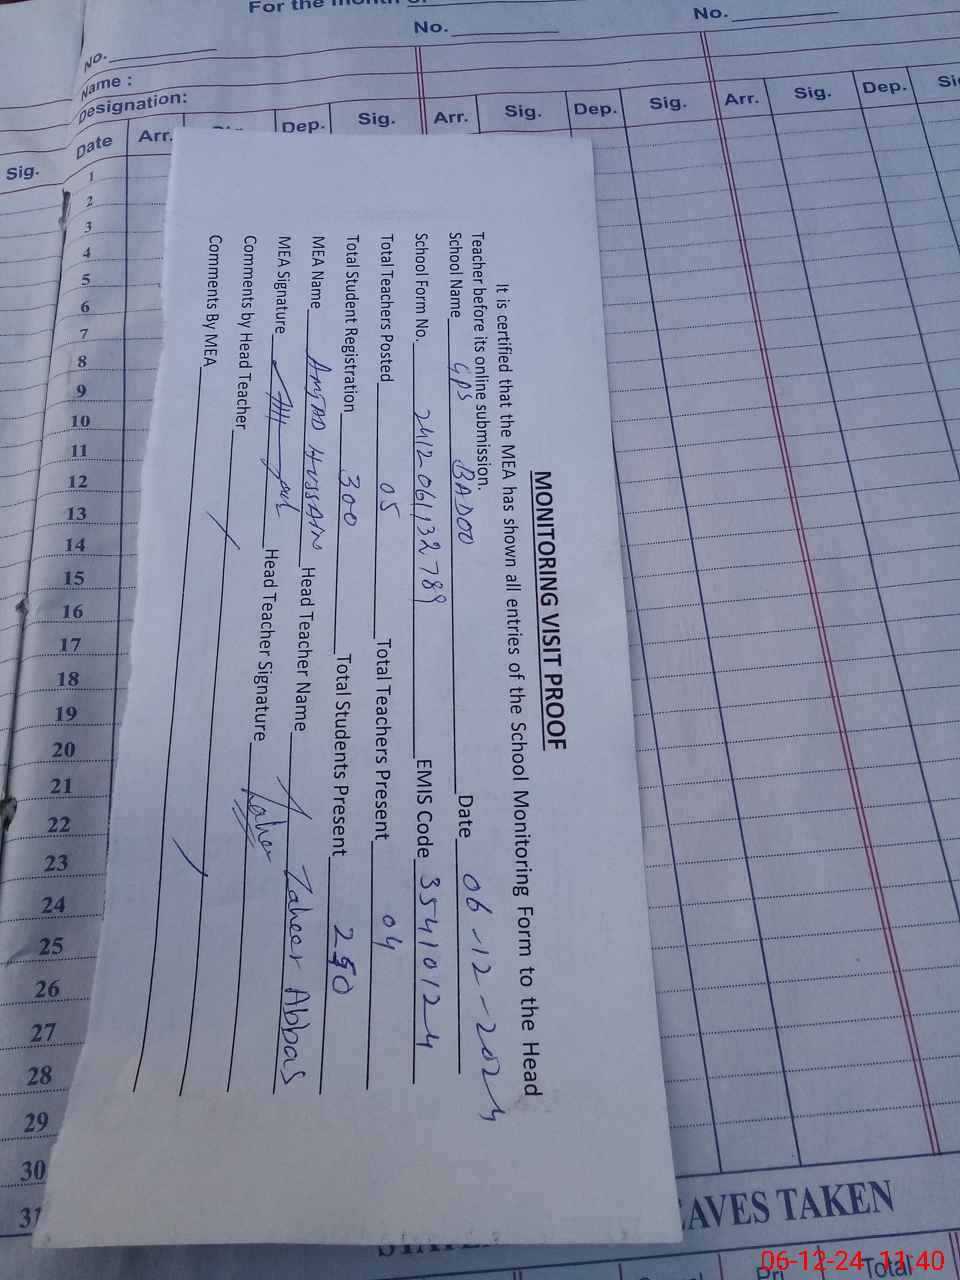 For the month of
No.
No.
No.
Name :
Designation:
Date Arr. Sig. Dep. Sig. Arr. Sig. Dep. Sig. Arr. Sig. Dep.
Sig.
1
2
3
4
5
6
7
8
9
10
11
12
13
14
15
16
17
18
19
20
21
22
23
24
25
26
27
28
29
30
31
MONITORING VISIT PROOF
It is certified that the MEA has shown all entries of the School Monitoring Form to the Head
Teacher before its online submission.
School Name GPS BADOO Date 06-12-2024
School Form No. 2412061132789 EMIS Code 35410124
Total Teachers Posted 05 Total Teachers Present 04
Total Student Registration 300 Total Students Present 250
MEA Name AMJAD HUSSAIN Head Teacher Name Zaheer Abbas
MEA Signature Head Teacher Signature Zaheer
Comments by Head Teacher
Comments By MEA
LEAVES TAKEN
Total
06-12-24 11:40